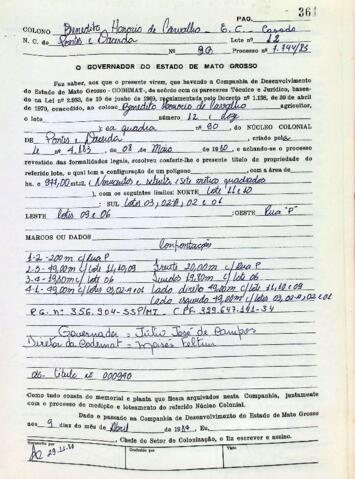 PAG. 361
COLONO Benedito Honorio de Carvalho E. C. Casado
N. C. de Pontes e Lacerda Lote nº 12
Nº 90 Processo nº 1.744/85
O GOVERNADOR DO ESTADO DE MATO GROSSO
Faz saber, aos que o presente virem, que havendo a Companhia de Desenvolvimento
do Estado de Mato Grosso - CODEMAT-, de acôrdo com os pareceres Técnico e Jurídico, basea-
do na Lei nº 2.933, de 19 de junho de 1969, regulamentada pelo Decreto nº 1.138, de 29 de
abril de 1970, concedido, ao colono Benedito Honorio de Carvalho
agricultor,
o lote, número 12 ( doze
) da quadra nº 90 , do NÚCLEO COLONIAL
DE Pontes e Lacerda , criado pela
Lei 4.113, de 08 de Maio de 1980, e achando-se o processo
revestido das formalidades legais, resolveu conferir-lhe o presente título de propriedade
do referido lote, o qual tem a configuração de um polígono , com a área de
hs. 977,00 mt2. ( Novecentos e setenta e sete metros quadrados
), com os seguintes limites: NORTE Lote 11 e 10
SUL Lote 03, 02 A, 02 e 06
LESTE Lote 09 e 06 ; OESTE Rua "P"
MARCOS OU DADOS Confrontações
1-2 - 20,0 m c/ Rua P
2-3 - 49,00 m c/ lote 11, 10, 09 Frente 20,00m c/ Rua P
3-4 - 19,80 m c/ lote 06 Fundos 19,80m c/ lote 06
4-1 - 49,00 c/ lote 03, 02-A e 02 lado direito 49,00m c/ lote 11, 10 e 09
lado esquerdo 49,00m c/ lotes 03, 02-A, 02 e 01
R.G. nº 356.904-SSP/MT C.P.F. 329.647.191-34
Governador = Júlio José de Campos
Diretor da Codemat = Moisés Feltrin
obs. título nº 000940
Como tudo consta do memorial e planta que ficam arquivados nesta Companhia, juntamente
com o processo de medição e loteamento do referido Núcleo Colonial.
Dado e passado na Companhia de Desenvolvimento do Estado de Mato Grosso
aos 9 dias do mês de Abril de 1986. Eu,
, Chefe do Setor de Colonização, o fiz escrever e assino.